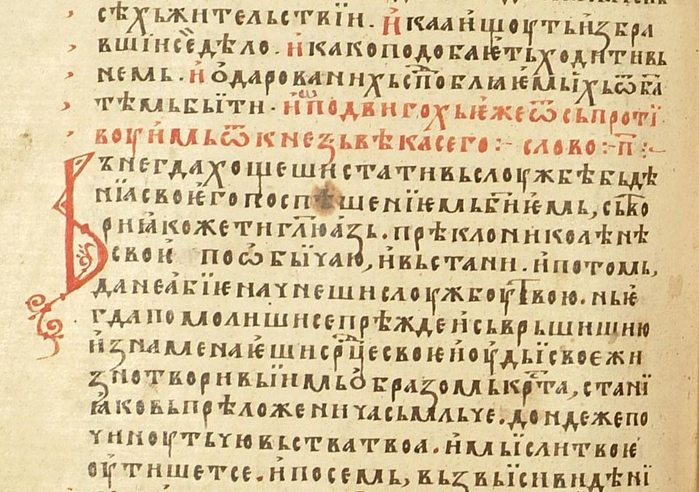 сѣхъжительствїи. и҆каанщоуть и҆збра
вшїисѐдѣло. и҆какоподобаѥ҆тьходитивь
немь. и҆ѻ҆дарованихьсп҃облꙗѥмыхьѿба҃
тѣмьбыти. и҆ѡ҆подвигохьꙗ҆жеѿсьпроті
воуи҆мьѿкнезьвѣкасего:~ слово:п҃:~
Въ негдахощешистативьслоужбѣбьдѣ
нїасвоѥ҆гопоспѣшенїѥмьбж҃їѥмь, сътво
рꙗ҆кожетигл҃юазь. прѣклониколѣнѣ
своѥ҆ поѻ҆бычаю, и҆вьстани. и҆потомь,
данеабїѥначнешислоужбоутвою. ныѥ҆
гдапомолишисепрѣждеи҆сьврьшишию
и҆знаменаѥ҆шисрⷣцесвоѥ҆и҆оудысвоѥжи
знотворивыи҆мьѻ҆бразомькрⷭта, стани
ꙗ҆ковьпрѣложеничасьмльче. дондежепо
чиноутьчювьстватвоа. и҆мыслитвоѥ
оутишетсе. и҆посемь, възвысивидѣнї